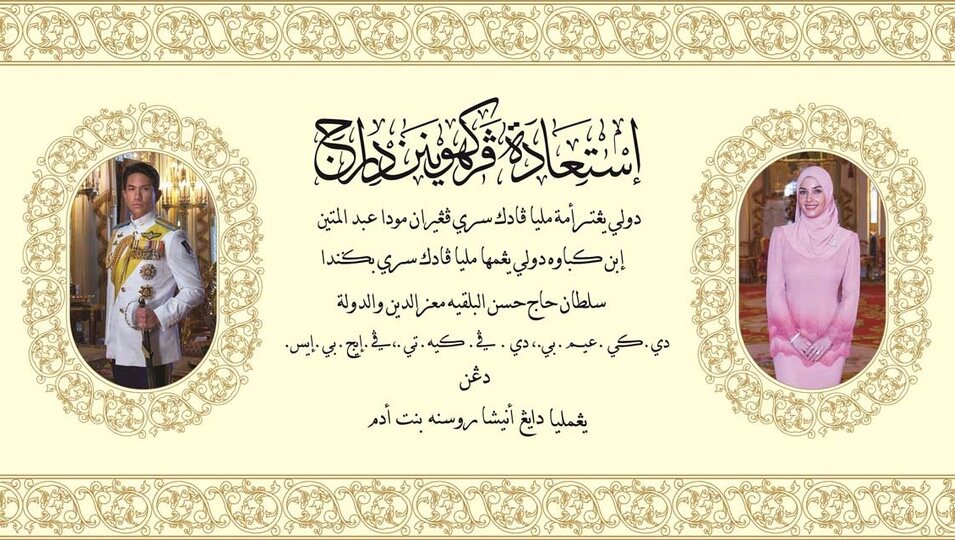 إستعادة ڤركهوينن دراج
دولي يڠ تر أمة مليا ڤادك سري ڤڠيران مودا عبد المتين
إبن كباوه دولي يڠمها مليا ڤادك سري بݢندا
سلطان حاج حسن البلقيه معز الدين والدولة
دي.كي.عيم.بي.،دي.ڤي.كيه.تي.،ڤي.إيچ.بي.إيس.
دڠن
يڠمليا دايڠ أنيشا روسنه بنت أدم